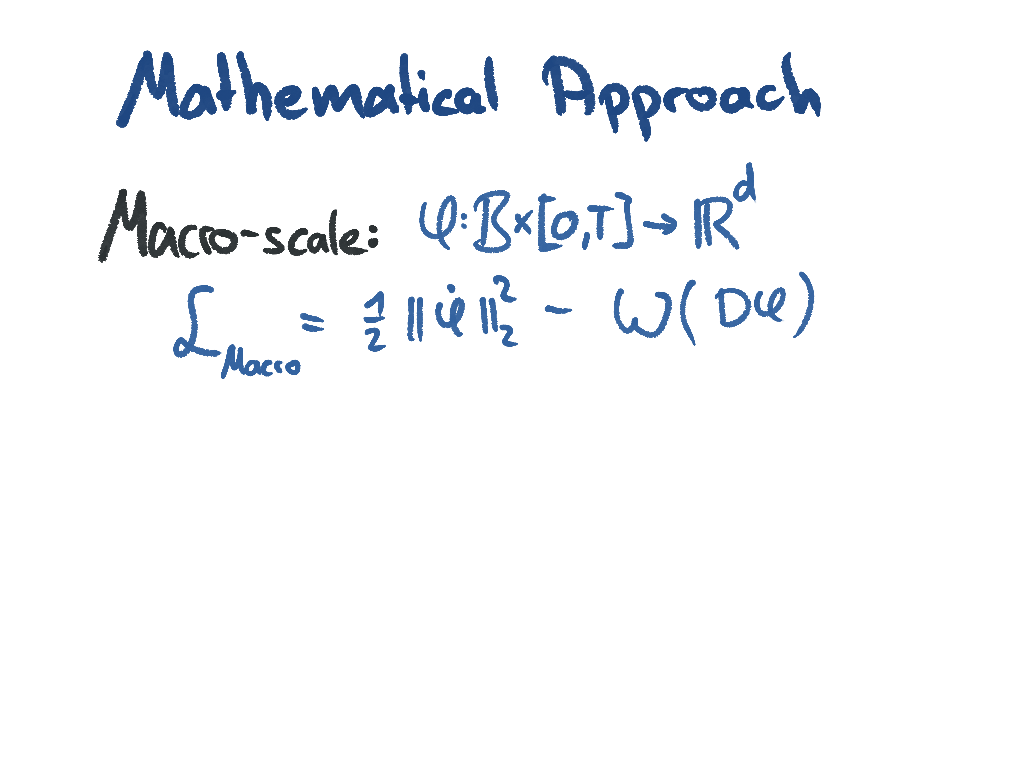 Mathematical Approach
Macro-scale: φ: B×[0,T] → ℝᵈ
ℒ_Macro = ½ ‖φ̇‖₂² − W(Dφ)